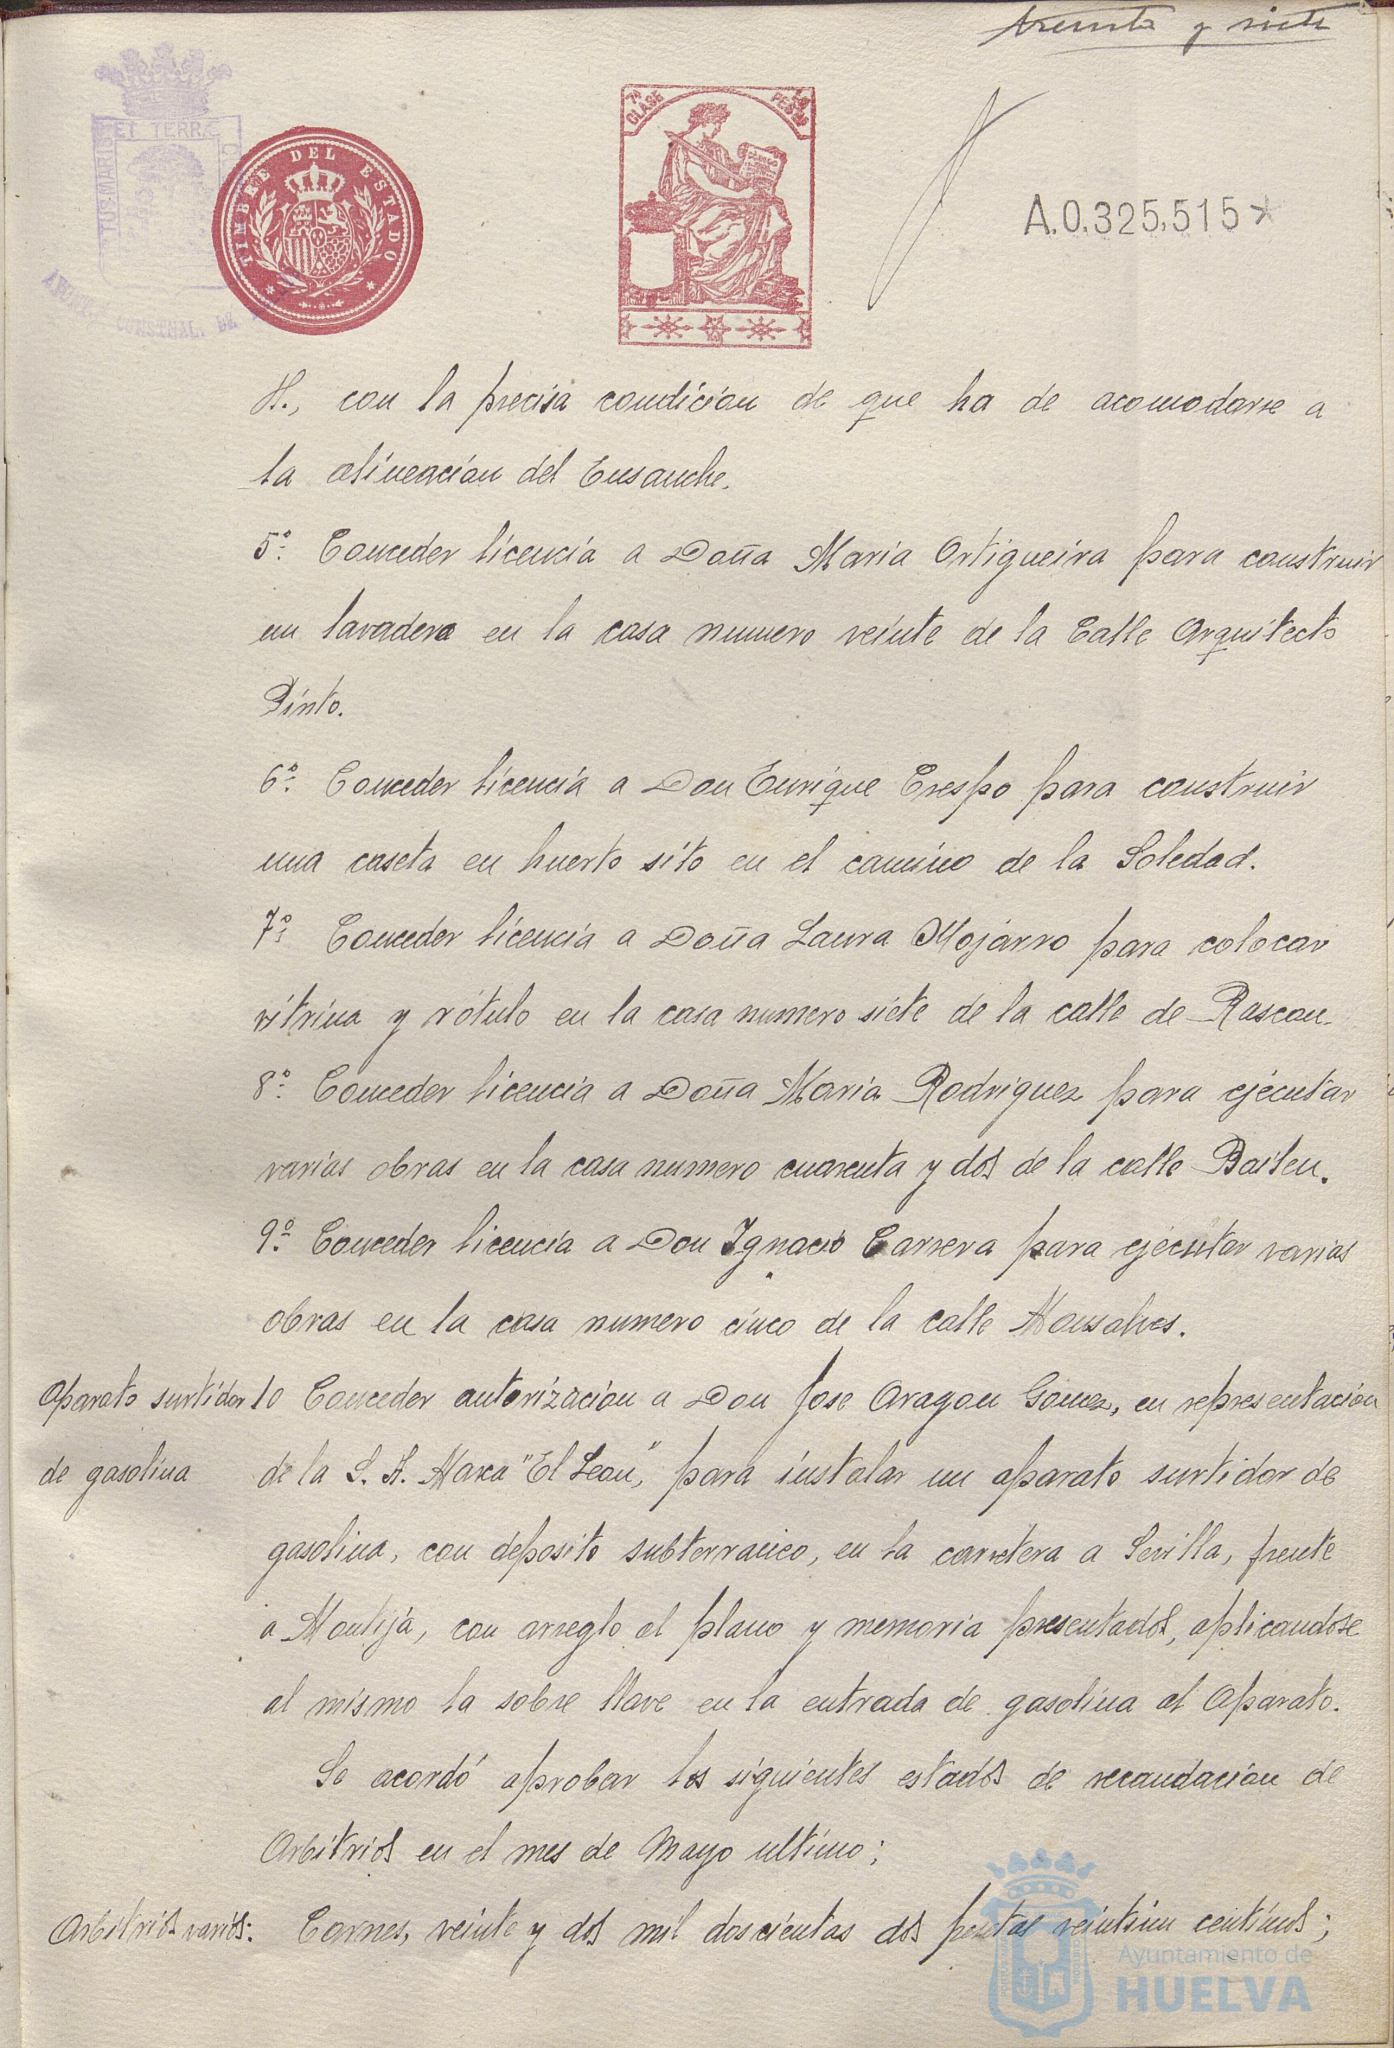 treinta y siete
TIMBRE DEL ESTADO
7ª CLASE
PESETAS
A.0,325,515*
ET TERRÆ
CONSTNAL. DE
H., con la precisa condicion de que ha de acomodarse a
la alineacion del Ensanche.
5º Conceder licencia a Doña Maria Ortigueira para construir
un lavadero en la casa numero veinte de la Calle Arquitecto
Pinto.
6º Conceder licencia a Don Enrique Crespo para construir
una caseta en huerto sito en el camino de la Soledad.
7º Conceder licencia a Doña Laura Mojarro para colocar
vitrina y rótulo en la casa numero siete de la calle de Rascon.
8º Conceder licencia a Doña Maria Rodriguez para ejecutar
varias obras en la casa numero cuarenta y dos de la calle Bailen.
9º Conceder licencia a Don Ignacio Carrera para ejecutar varias
obras en la casa numero cinco de la calle Monsalves.
Aparato surtidor 10 Conceder autorizacion a Don Jose Aragon Gomez, en representacion
de gasolina de la S. A. Marca "El Leon", para instalar un aparato surtidor de
gasolina, con deposito subterraneo, en la carretera a Sevilla, frente
a Montija, con arreglo al plano y memoria presentados, aplicandose
al mismo la sobre llave en la entrada de gasolina al Aparato.
Se acordó aprobar los siguientes estados de recaudacion de
Arbitrios en el mes de Mayo ultimo;
Arbitrios varios: Carnes, veinte y dos mil doscientas dos pesetas veintiun centimos;
Ayuntamiento de
HUELVA